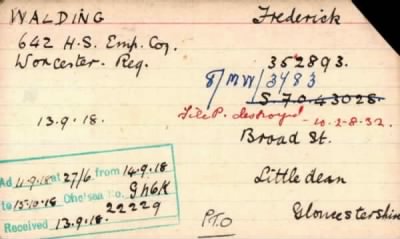 WALDING Frederick
642 H.S. Emp. Coy.
Worcester. Reg. 352893.
8/MW/3483
S.70.43028.
File P. destroyed - 10-2-8-32.
13.9.18.
Broad St.
Littledean
Gloucestershire
Ad 11.9.18 at 27/6 from 14.9.18
to 15.10.18 Chelsea No. 9h6K
22229
Received 13.9.18.
P.T.O